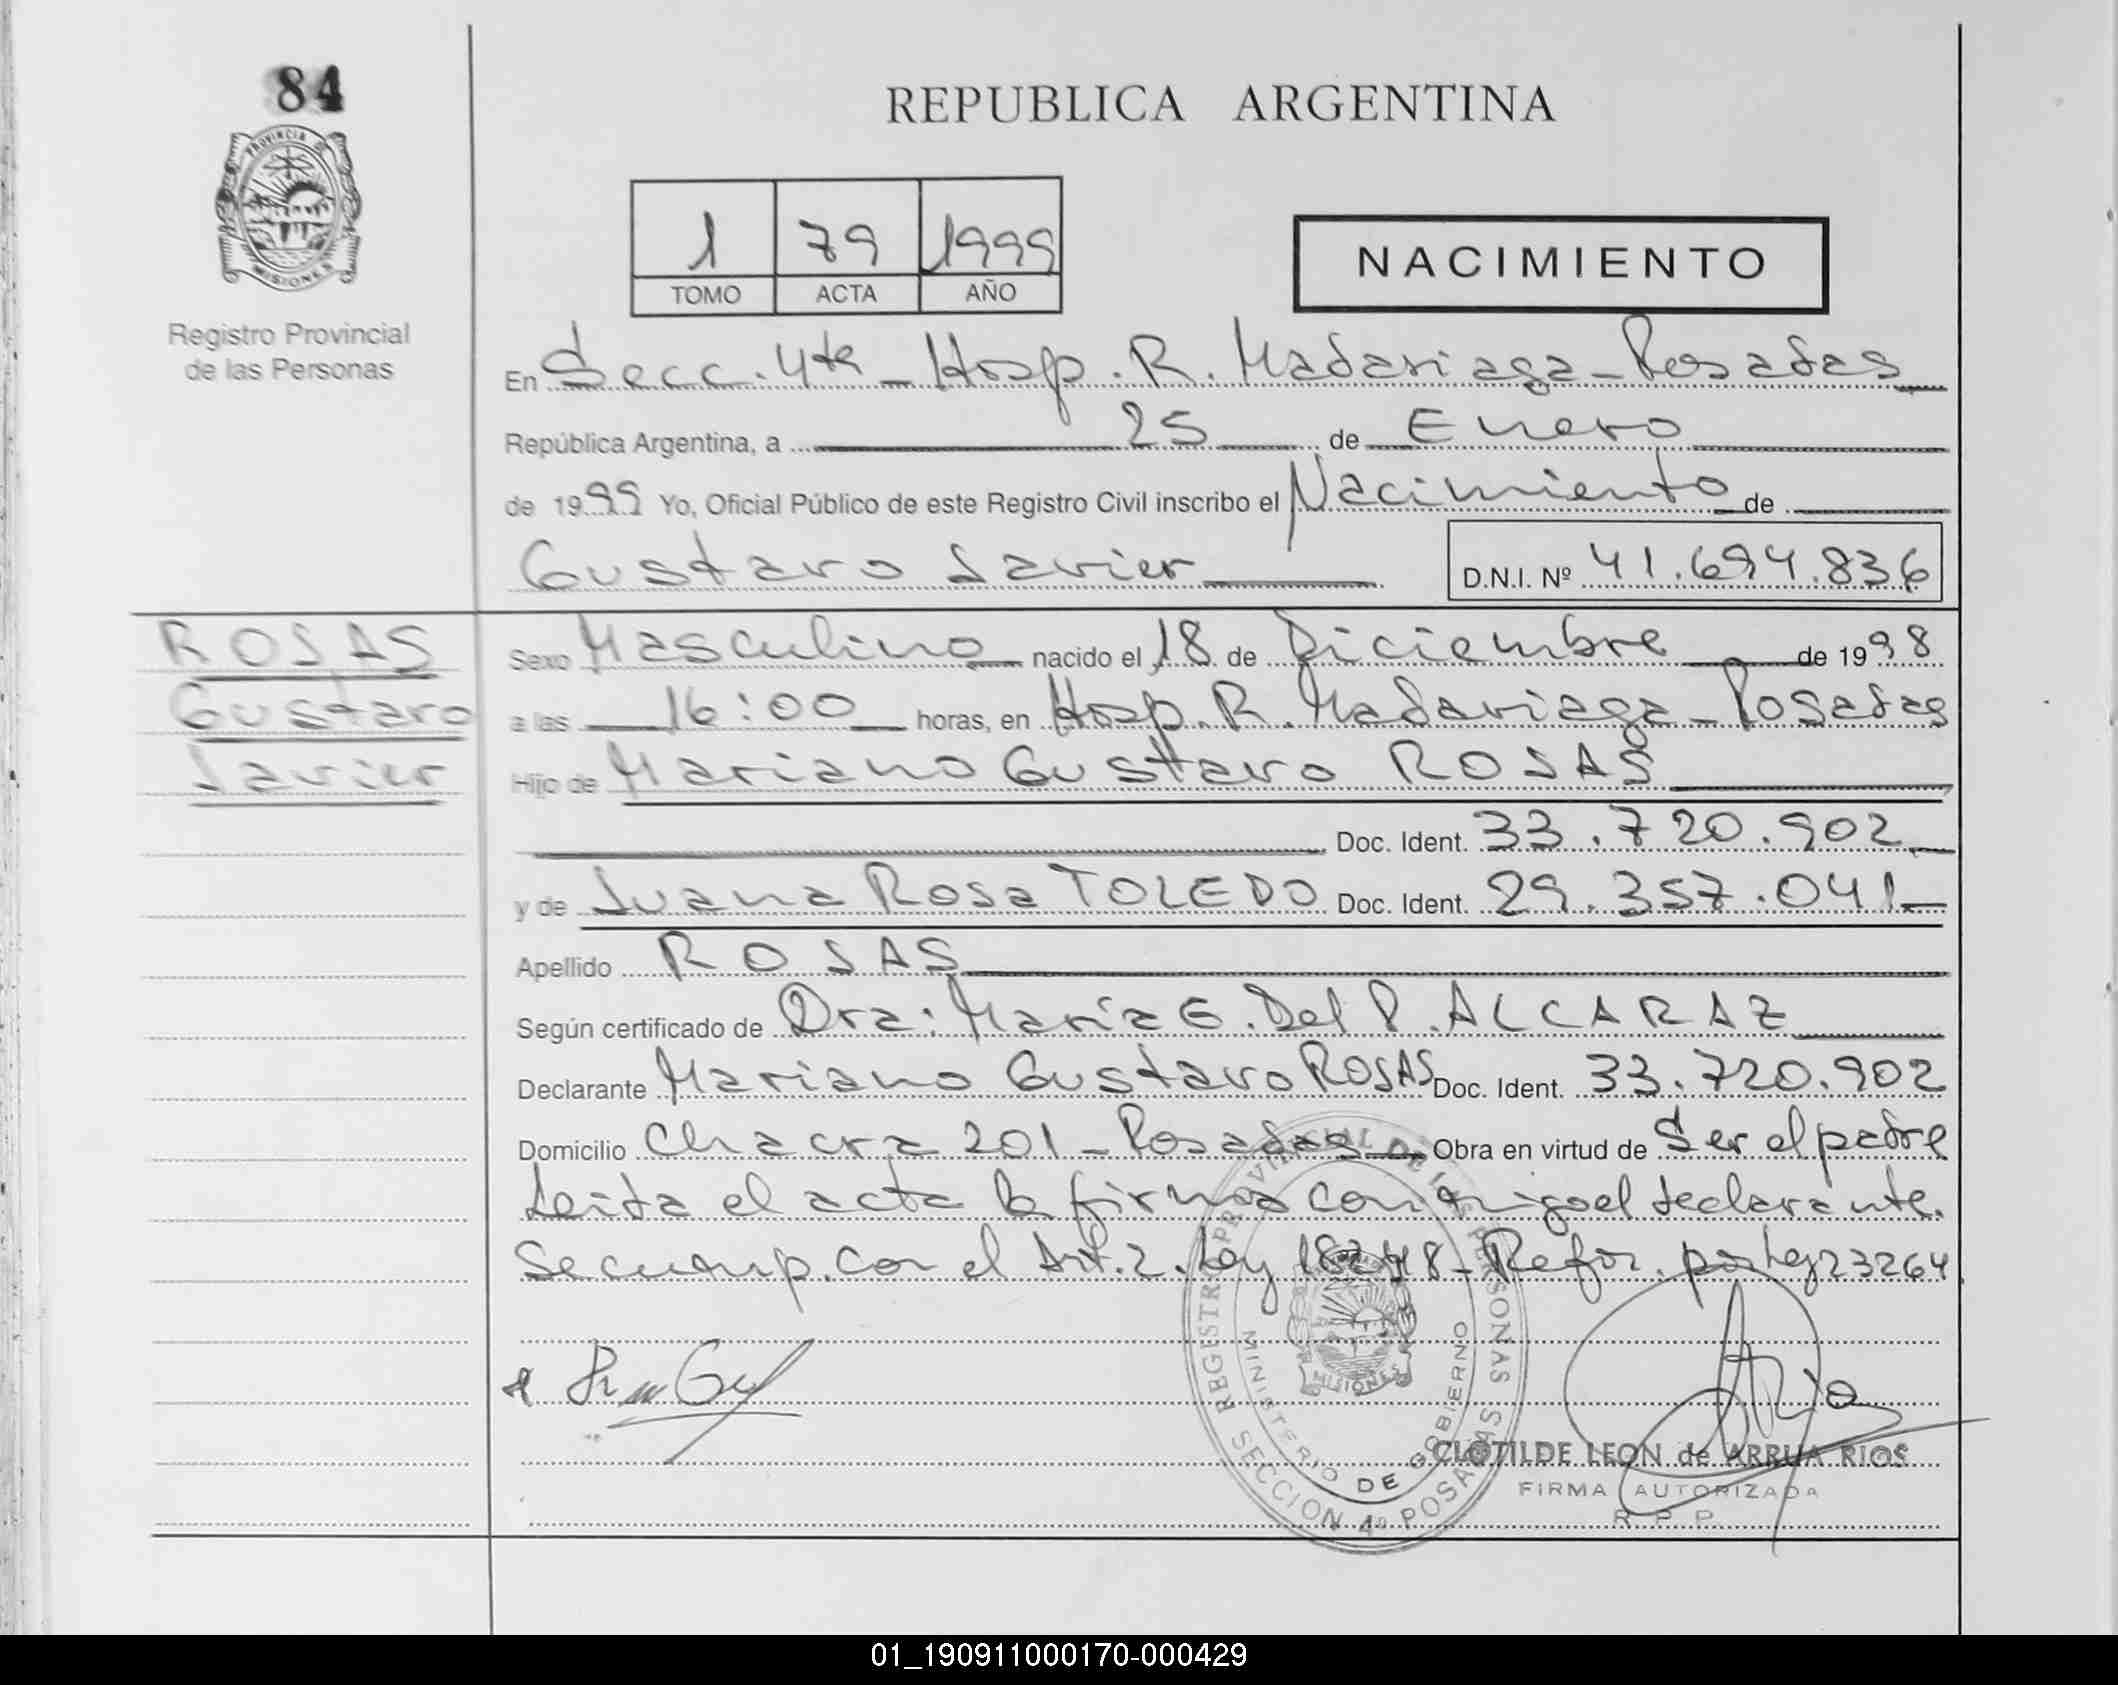 84
PROVINCIA DE
MISIONES
Registro Provincial
de las Personas
REPUBLICA ARGENTINA
1 79 1999
TOMO ACTA AÑO
NACIMIENTO
En Secc. 4ta - Hosp. R. Madariaga - Posadas
República Argentina, a 25 de Enero
de 1999 Yo, Oficial Público de este Registro Civil inscribo el Nacimiento de
Gustavo Javier D.N.I. Nº 41.694.836
ROSAS
Gustavo
Javier
Sexo Masculino nacido el 18 de Diciembre de 1998
a las 16:00 horas, en Hosp. R. Madariaga - Posadas
Hijo de Mariano Gustavo ROSAS
Doc. Ident. 33.720.902
y de Juana Rosa TOLEDO Doc. Ident. 29.357.041
Apellido ROSAS
Según certificado de Dra: María G. Del P. ALCARAZ
Declarante Mariano Gustavo ROSAS Doc. Ident. 33.720.902
Domicilio Chacra 201 - Posadas Obra en virtud de Ser el padre
Leída el acta la firma conmigo el declarante.
Se cump. con el Art. 2. Ley 18248 - Refor. por Ley 23264
REGISTRO PROVINCIAL DE LAS PERSONAS
MINISTERIO DE GOBIERNO
MISIONES
SECCION 4ª POSADAS
CLOTILDE LEON de ARRUA RIOS
FIRMA AUTORIZADA
R P P
01_190911000170-000429